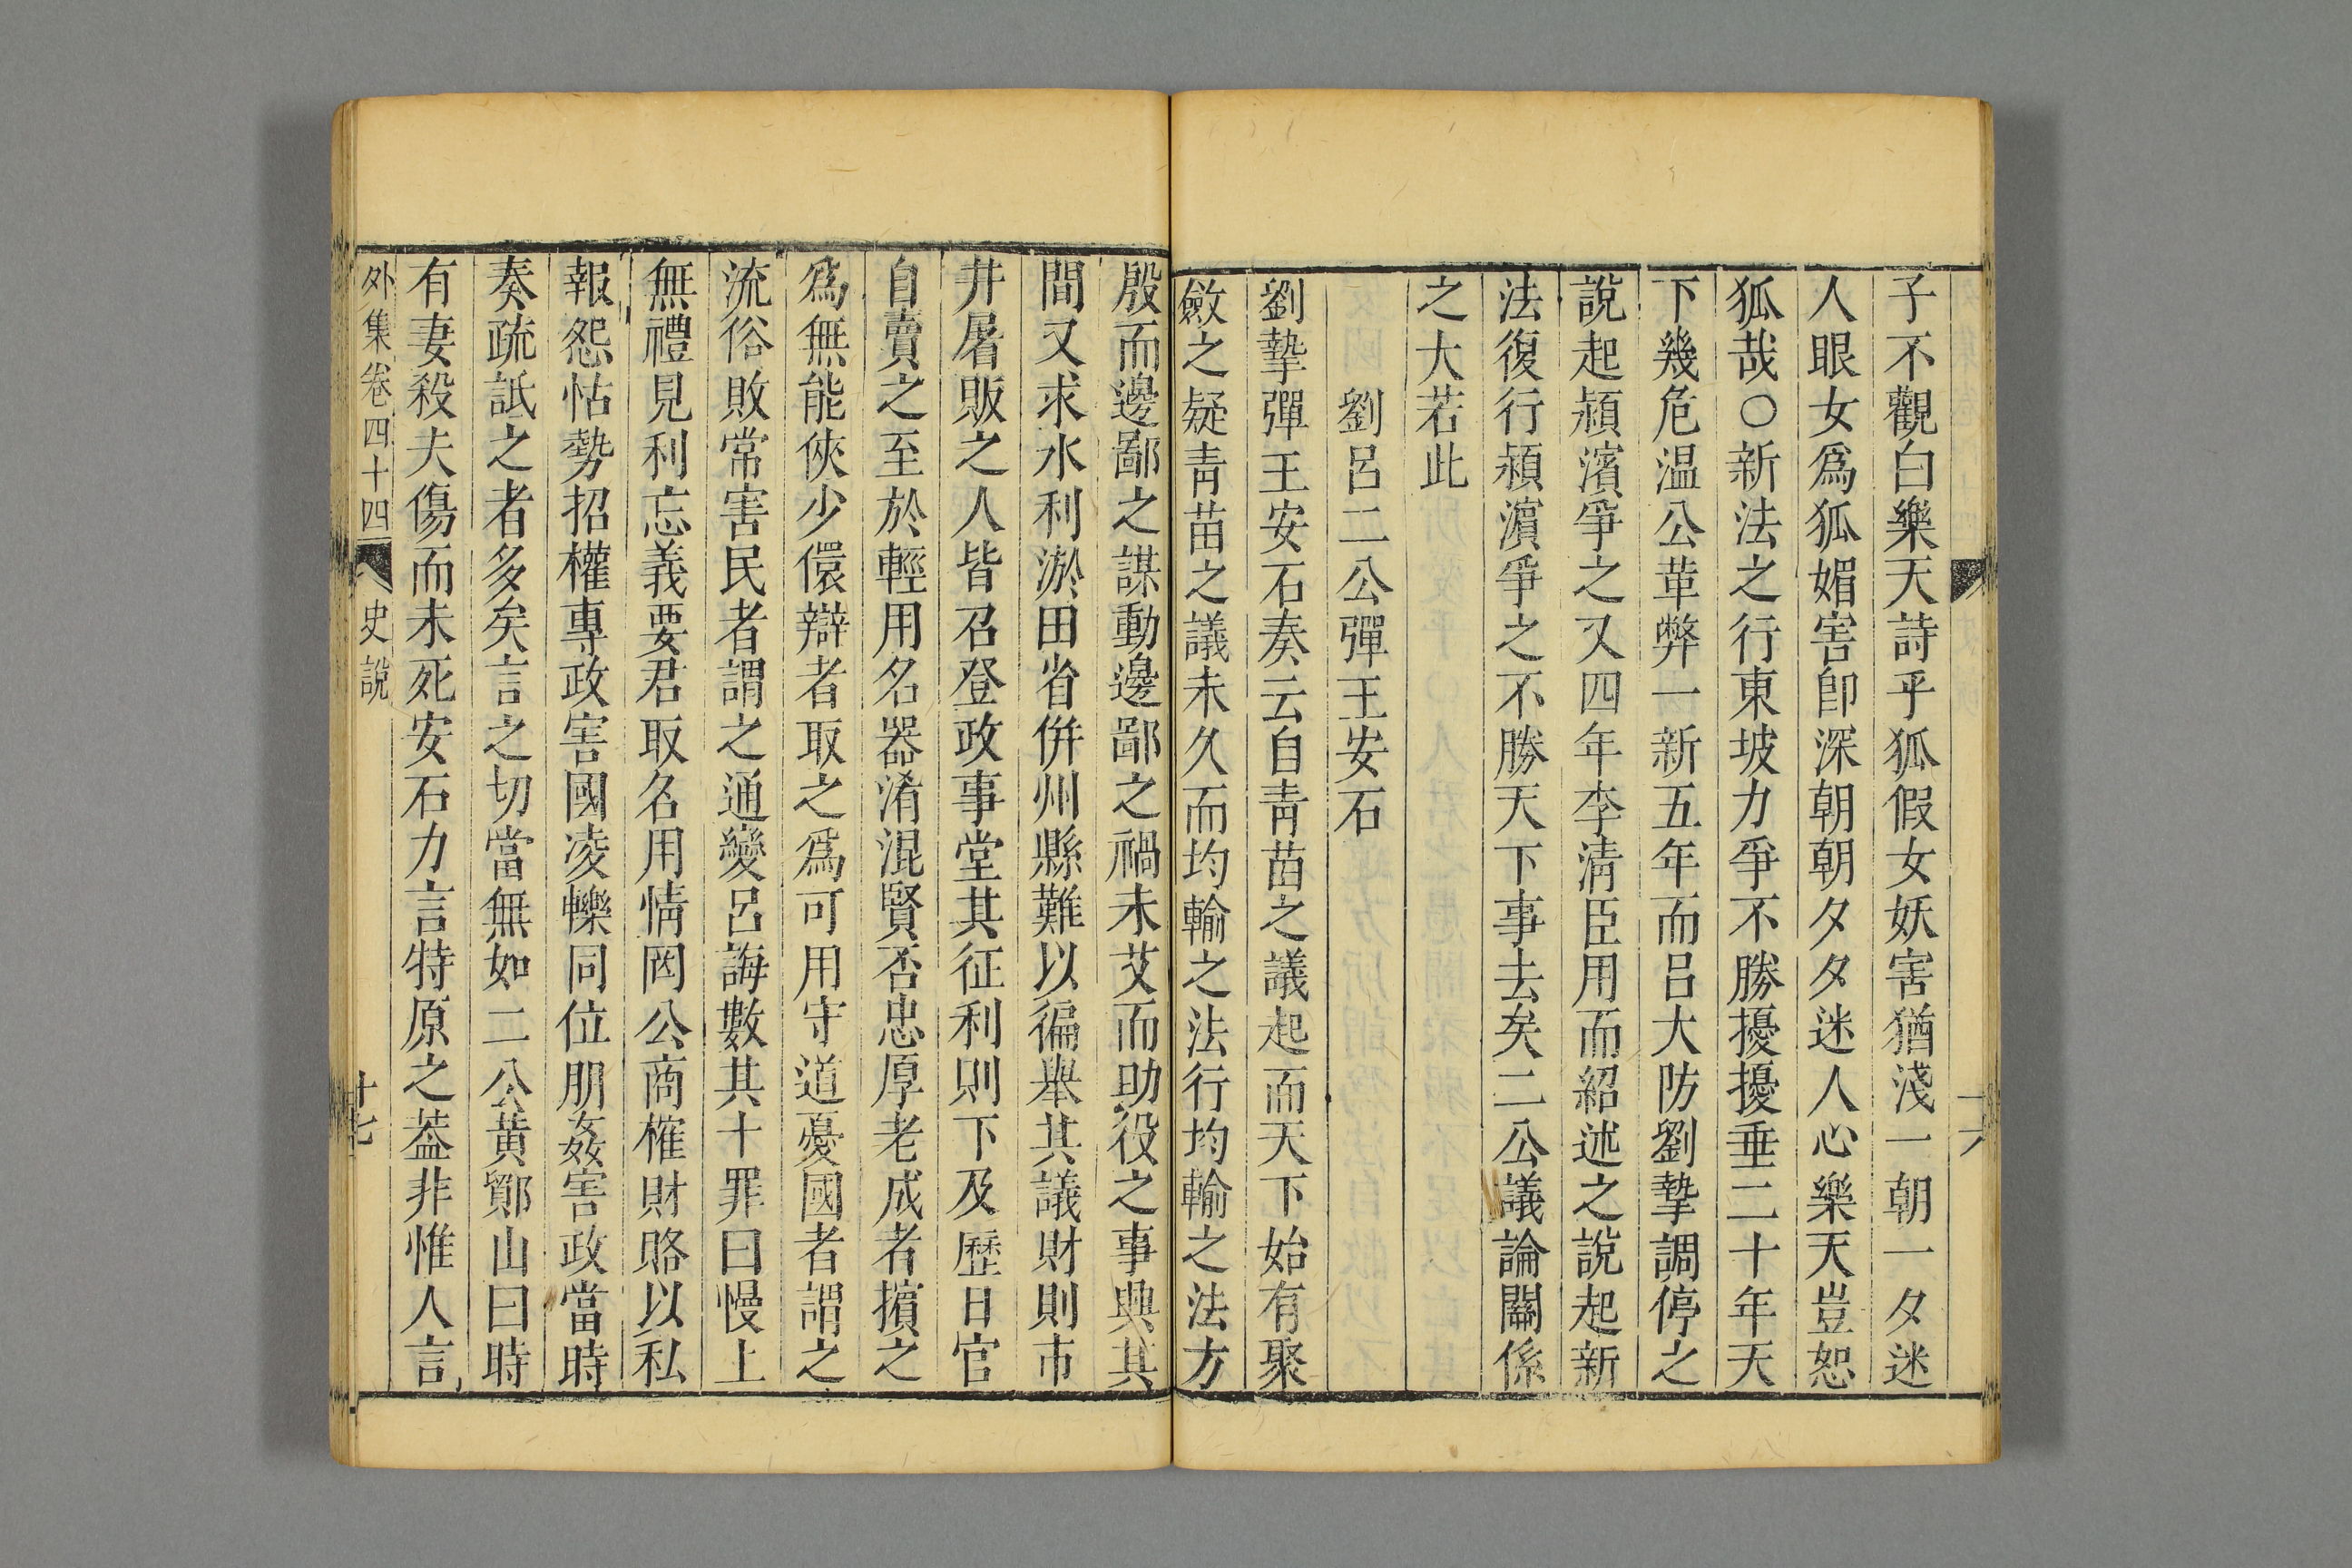 子不觀白樂天詩乎狐假女妖害猶淺一朝一夕迷
人眼女爲狐媚害卽深朝朝夕夕迷人心樂天豈恕
狐哉○新法之行東坡力爭不勝擾擾垂二十年天
下幾危温公革弊一新五年而呂大防劉摯調停之
說起潁濱爭之又四年李淸臣用而紹述之說起新
法復行潁濵爭之不勝天下事去矣二公議論關係
之大若此
劉呂二公彈王安石
劉摯彈王安石奏云自靑苗之議起而天下始有聚
斂之疑靑苗之議未久而均輸之法行均輸之法方
殷而邊鄙之謀動邊鄙之禍未艾而助役之事興其
間又求水利淤田省併州縣難以徧舉其議財則市
井屠販之人皆召登政事堂其征利則下及歷日官
自賣之至於輕用名器淆混賢否忠厚老成者擯之
爲無能俠少儇辯者取之爲可用守道憂國者謂之
流俗敗常害民者謂之通變呂誨數其十罪曰慢上
無禮見利忘義要君取名用情罔公商榷財賂以私
報怨怙勢招權專政害國凌轢同位朋姦害政當時
奏疏詆之者多矣言之切當無如二公黄鄮山曰時
有妻殺夫傷而未死安石力言特原之葢非惟人言
外集卷四十四
史說
十七